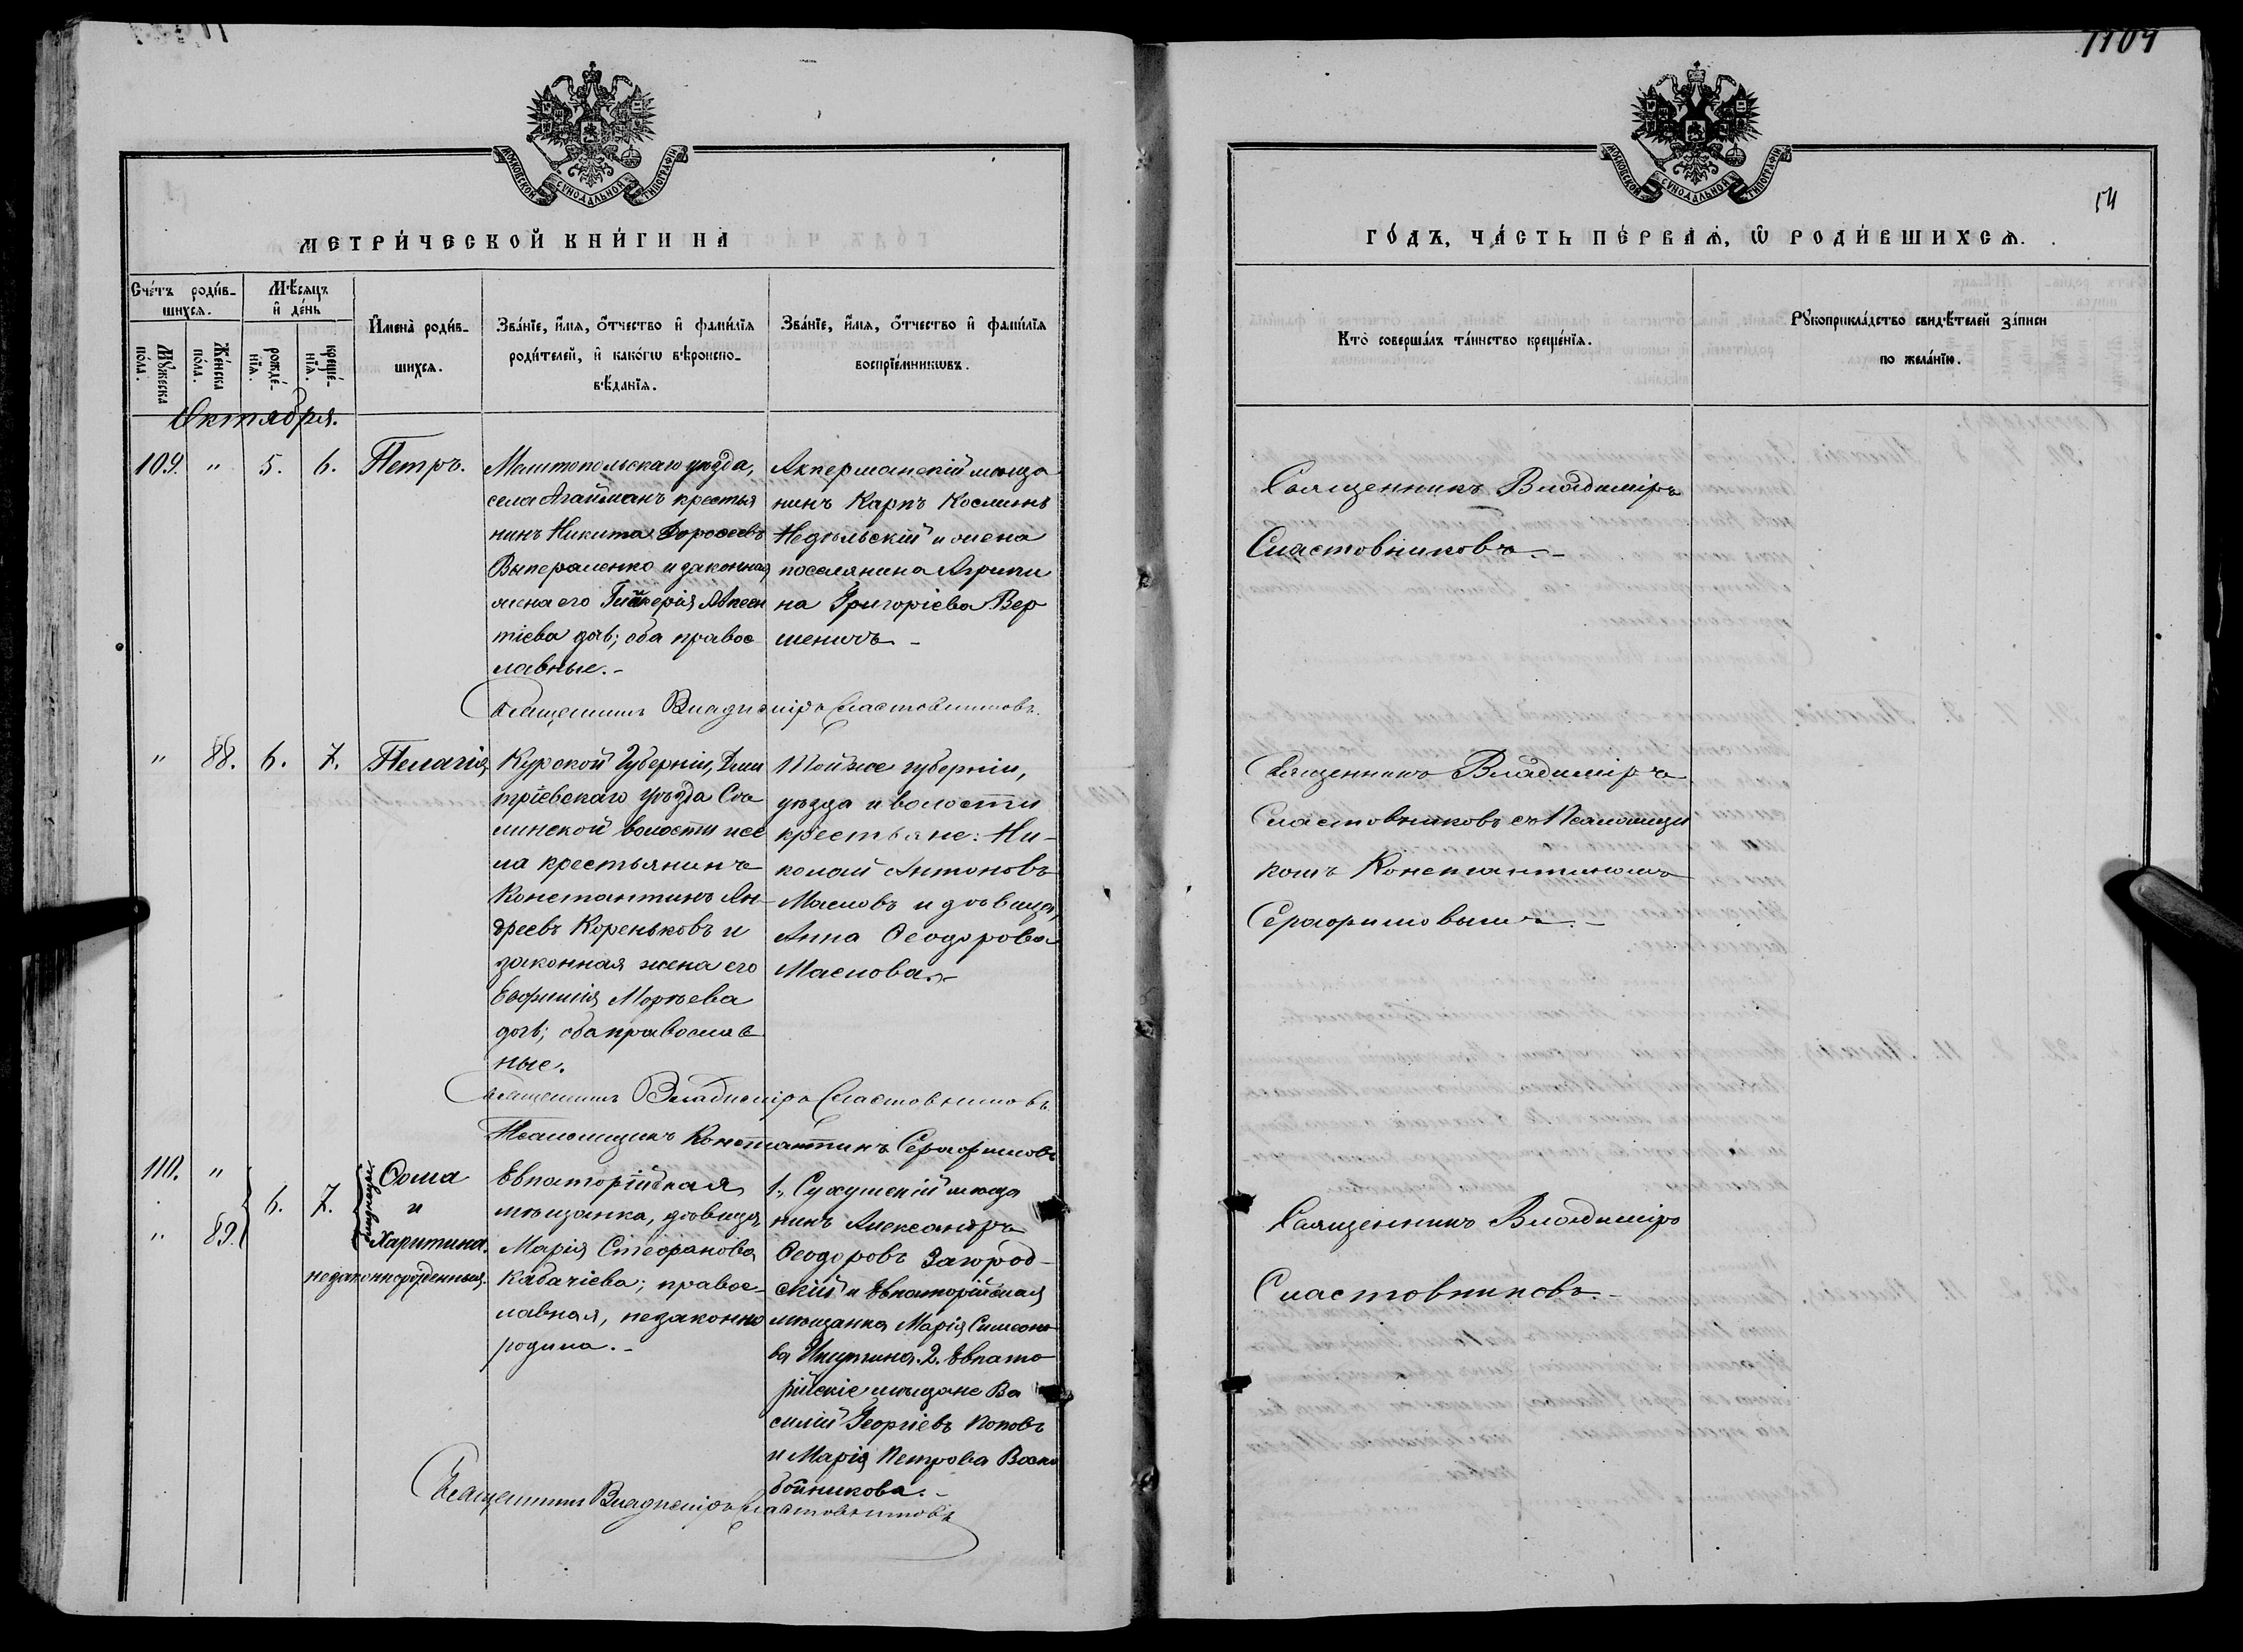 1104
МОСКОВСКОЙ СУНОДАЛЬНОЙ ТИПОГРАФІИ
МЕТРИ́ЧЕСКОЙ КНИ́ГИ НА
Сче́тъ роди́в-
шихся.
Мѣ́сяцъ
и҆ де́нь
Мꙋ́жеска
по́ла.
Же́нска
по́ла.
рожде́-
нїѧ.
креще́-
нїѧ.
И҆мена̀ роди́в-
шихся.
Зва́нїе, и҆́мѧ, ѻ҆́тчество и҆ фами́лїѧ
роди́телей, и҆ како́гѡ вѣроиспо-
вѣ́данїѧ.
Зва́нїе, и҆́мѧ, ѻ҆́тчество и҆ фами́лїѧ
воспрїе́мникѡвъ.
Октября.
109. " 5. 6. Петръ.
Мелитопольскаго уѣзда,
села Агайманъ крестья
нинъ Никита Дороѳеевъ
и законная
жена его Гликерія
тіева дочь; оба правос
лавные.-
Аккерманскій мѣща
нинъ Карпъ Косминъ
Недѣльскій и жена
поселянина Агрипи
на Григорьева Вер
шеничъ -
Священникъ Владиміръ Сластовниковъ.
" 88. 6. 7. Пелагія
Курской Губерніи, Дми
тріевскаго Уѣзда Сна
линской волости и се
ла крестьянинъ
Константинъ Ан-
дреевъ Кореньковъ и
законная жена его
Евфимія Моргеева
дочь; оба православ
ные.
Той же губерніи,
уѣзда и волости
крестьяне: Ни-
колай Антоновъ
Масловъ и дѣвица,
Анна Ѳеодорова
Маслова.-
Священникъ Владиміръ Сластовниковъ.
Псаломщикъ Константинъ Серафимовъ
110. "
" 89. 6. 7.
Ѳома
и
Харитина.
незаконнорожденные.
Евпаторійская
мѣщанка, дѣвица,
Марія Стефанова
Кабачіева; правос-
лавная, незаконно
родила.-
1., мѣща
нинъ Александръ
Ѳеодоровъ Загород-
скій и Евпаторійская
мѣщанка Марія Симеоно
ва 2. Евпато
рійскіе мѣщане Ва
силій Георгіевъ Поповъ
и Марія Петрова Воско
бойникова.-
Священникъ Владиміръ Сластовниковъ
МОСКОВСКОЙ СУНОДАЛЬНОЙ ТИПОГРАФІИ
54
ГО́ДЪ, ЧА́СТЬ ПЕ́РВАѦ, Ѡ҆ РОДИ́ВШИХСѦ.
Кто̀ соверша́лъ та́инство креще́нїѧ.
Рꙋкоприкла́дство свидѣ́телей за́писи
по жела́нїю.
Священникъ Владиміръ
Сластовниковъ.-
Священникъ Владиміръ
Сластовниковъ съ Псаломщи
комъ Константиномъ
Серафимовымъ.-
Священникъ Владиміръ
Сластовниковъ.-